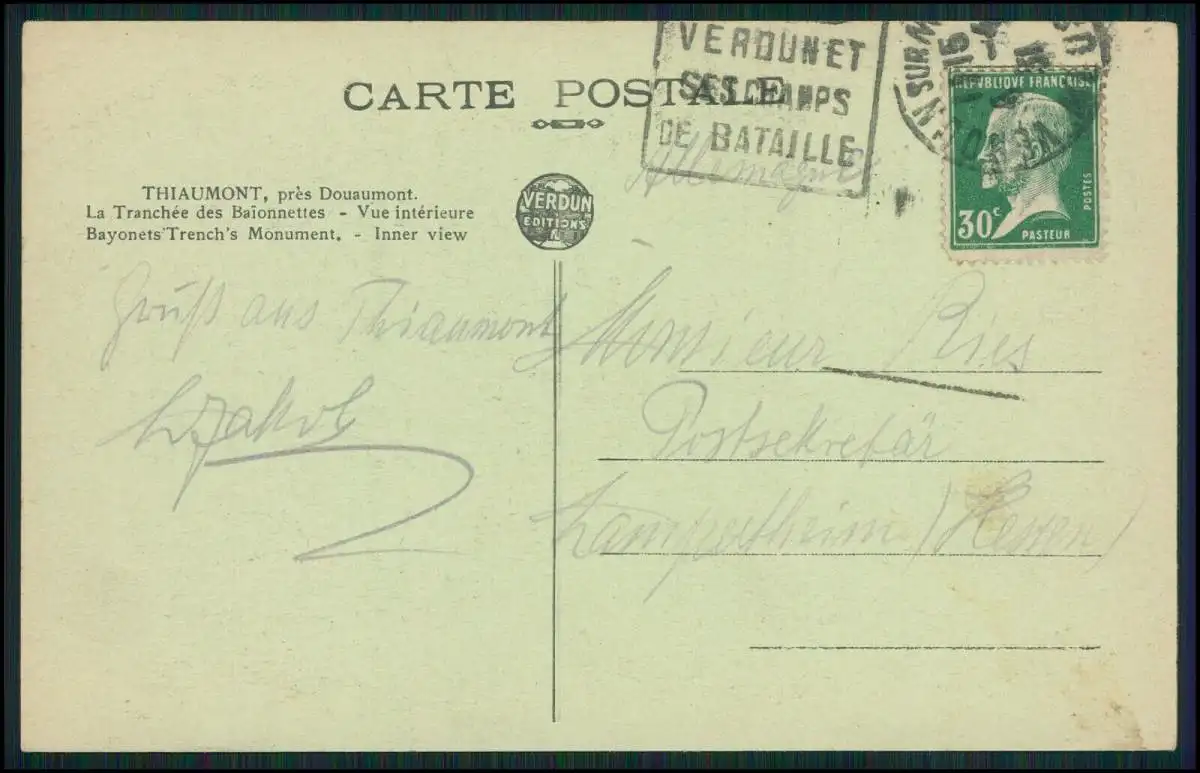 VERDUN ET
SES CHAMPS
DE BATAILLE
CARTE POSTALE
REPVBLIQVE FRANÇAISE
30c
POSTES
PASTEUR
Allemagne
THIAUMONT, près Douaumont.
La Tranchée des Baïonnettes - Vue intérieure
Bayonets Trench's Monument. - Inner view
VERDUN
EDITIONS
Gruß aus Thiaumont
Jakob
Monsieur Ries
Postsekretär
Lampertheim (Hessen)